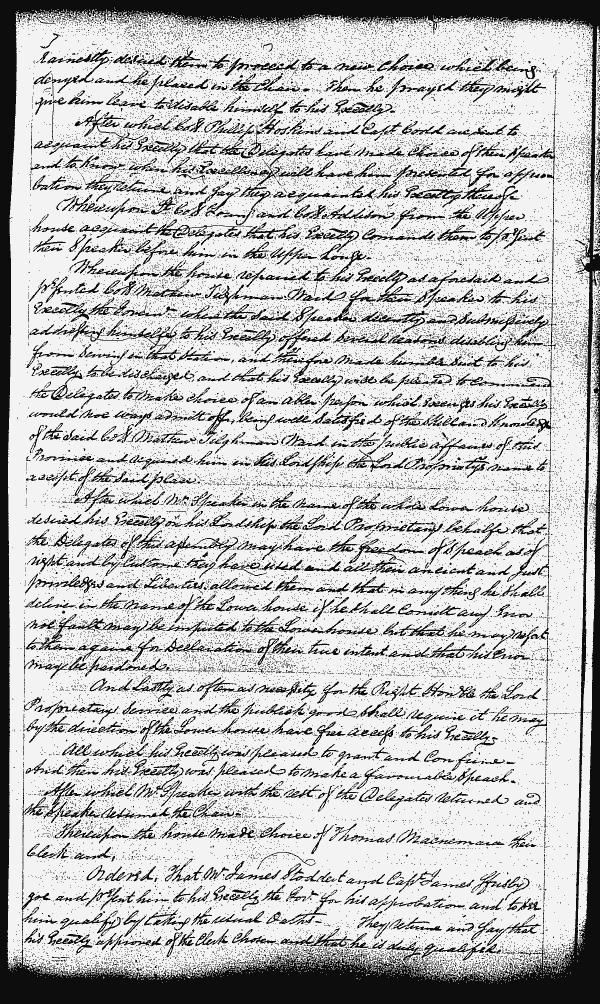 7
Earnestly desired them to proceed to a new Choice which being
denyed and he placed in the Chair. Then he prayed they might
give him leave to disable himself to his Excelly.
After which Coll Phillip Hoskins and Capt Codd are sent to
acquaint his Excelly that the Delegates have made Choice of their Speaker
and to Know when his Excellency will have him presented for appro
bation they returne and say they acquainted his Excelly thereof
Whereupon Lt Coll Young and Coll Addison from the Upper
house acquaint the Delegates that his Excelly Comands them to p'sent
their Speaker before him in the Upper house.
Whereupon the house repaired to his Excelly as aforesaid and
p'sented Coll Mathew Tilghman Ward for their Speaker to his
Excelly the Govern' when the said Speaker decently and Submissively
addressing himselfe to his Excelly offered several Reasons disabling him
from Serving in that Station, and therefore made humble Suit to his
Excelly to be discharged and that his Excelly wise be pleased to Command
the Delegates to make choice of an abler person which Excuses his Excelly
would noe ways admitt off, being well satisfied of the Skill and Knowledge
of the said Coll Mathew Tilghman Ward in the publick affaires of this
Province and required him in his Lordship the Lord Proprietys name to
accept of the said place.
After which Mr Speaker in the name of the whole Lower house
desired his Excelly on his Lordship the Lord Proprietarys behalfe that
the Delegates of this assembly may have the freedom of Speach as of
right and by Custome they have used and all their ancient and just
priviledges and Liberties allowed them and that in any thing he shall
deliver in the name of the Lower house if he shall Comitt any Error
not fault may be imputed to the Lower house but that he may resort
to them againe for Declaration of their true intent and that his Error
may be pardoned.
And Lastly as often as necessity for the Right Honble the Lord
Proprietary Service and the publick good shall require it he may
by the direction of the Lower house have free access to his Excelly.
All which his Excelly was pleased to grant and Confirme.
And then his Excelly was pleased to make a favourable Speach.
After which Mr Speaker with the rest of the Delegates returned and
the Speaker resumed the Chair.
Thereupon the house made choice of Thomas Macnemara their
Clerk and,
Ordered, That Mr James Stoddert and Capt James
goe and p'sent him to his Excelly the Gov' for his approbation and to see
him qualify by taking the usual Oaths. They returne and say that
his Excelly approved of the Clerk Chosen and that he is duly qualified.